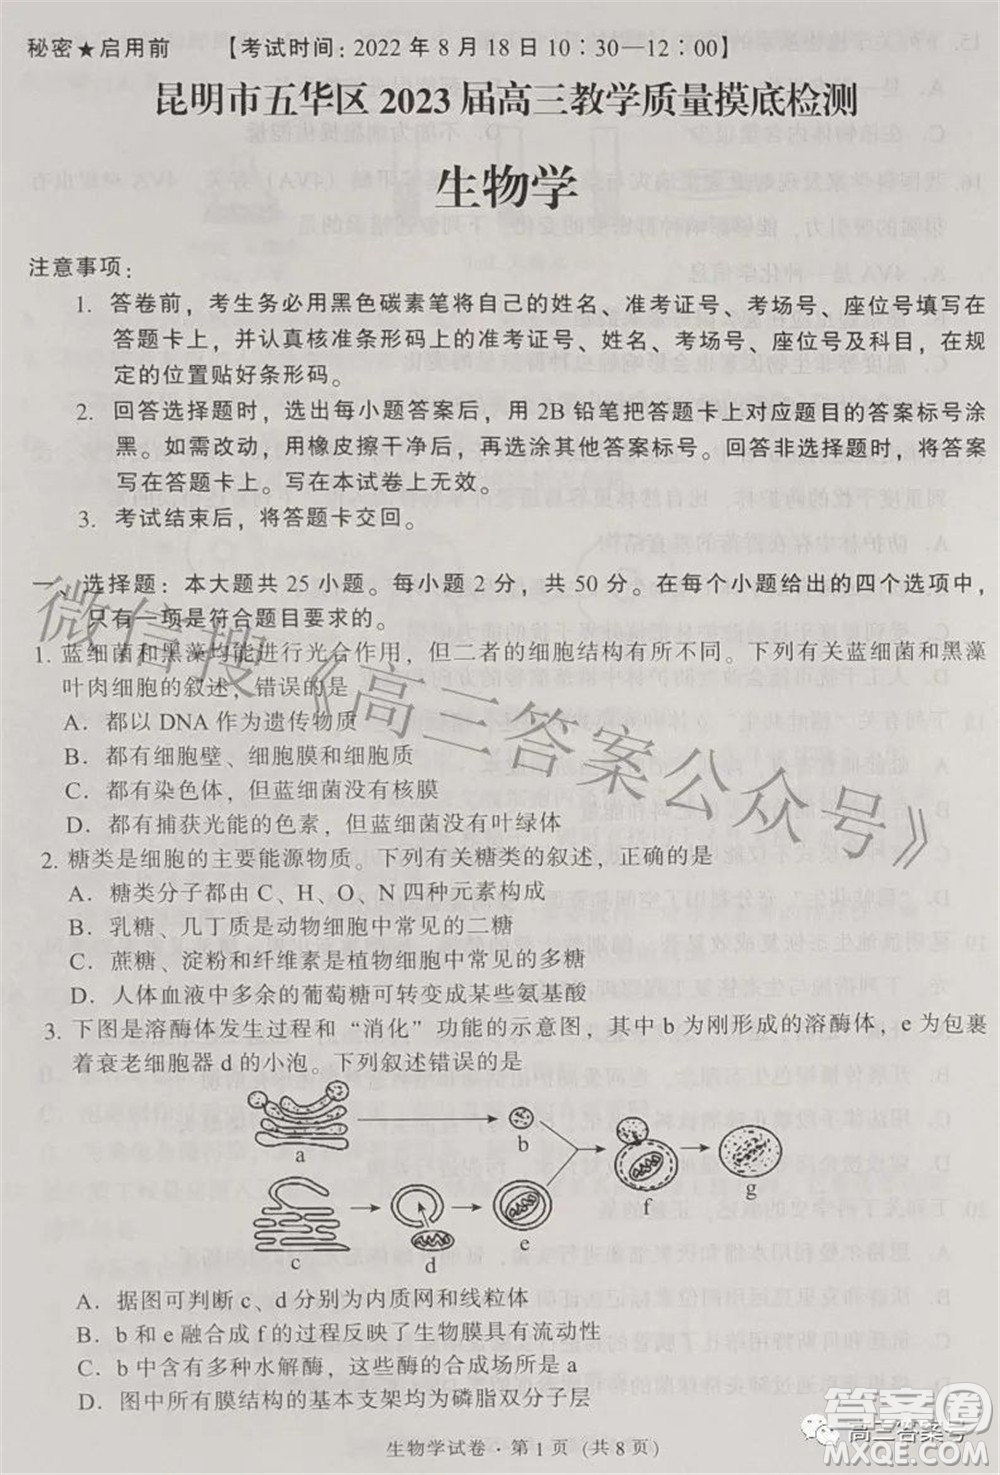 秘密★启用前 【考试时间：2022 年 8 月 18 日 10：30—12：00】
昆明市五华区 2023 届高三教学质量摸底检测
生物学
注意事项：
1. 答卷前，考生务必用黑色碳素笔将自己的姓名、准考证号、考场号、座位号填写在
答题卡上，并认真核准条形码上的准考证号、姓名、考场号、座位号及科目，在规
定的位置贴好条形码。
2. 回答选择题时，选出每小题答案后，用 2B 铅笔把答题卡上对应题目的答案标号涂
黑。如需改动，用橡皮擦干净后，再选涂其他答案标号。回答非选择题时，将答案
写在答题卡上。写在本试卷上无效。
3. 考试结束后，将答题卡交回。
一、选择题：本大题共 25 小题。每小题 2 分，共 50 分。在每个小题给出的四个选项中，
只有一项是符合题目要求的。
1. 蓝细菌和黑藻均能进行光合作用，但二者的细胞结构有所不同。下列有关蓝细菌和黑藻
叶肉细胞的叙述，错误的是
A．都以 DNA 作为遗传物质
B．都有细胞壁、细胞膜和细胞质
C．都有染色体，但蓝细菌没有核膜
D．都有捕获光能的色素，但蓝细菌没有叶绿体
2. 糖类是细胞的主要能源物质。下列有关糖类的叙述，正确的是
A．糖类分子都由 C、H、O、N 四种元素构成
B．乳糖、几丁质是动物细胞中常见的二糖
C．蔗糖、淀粉和纤维素是植物细胞中常见的多糖
D．人体血液中多余的葡萄糖可转变成某些氨基酸
3. 下图是溶酶体发生过程和“消化”功能的示意图，其中 b 为刚形成的溶酶体，e 为包裹
着衰老细胞器 d 的小泡。下列叙述错误的是
a
b
c
d
e
f
g
A．据图可判断 c、d 分别为内质网和线粒体
B．b 和 e 融合成 f 的过程反映了生物膜具有流动性
C．b 中含有多种水解酶，这些酶的合成场所是 a
D．图中所有膜结构的基本支架均为磷脂双分子层
生物学试卷·第 1 页（共 8 页）
微信搜《高三答案公众号》
高三答案号
答案圈
MXQE.COM